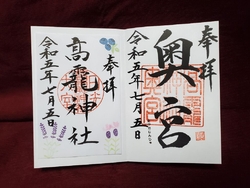 奉拝
奥宮
令和五年七月五日
奉拝
高龍神社
令和五年七月五日